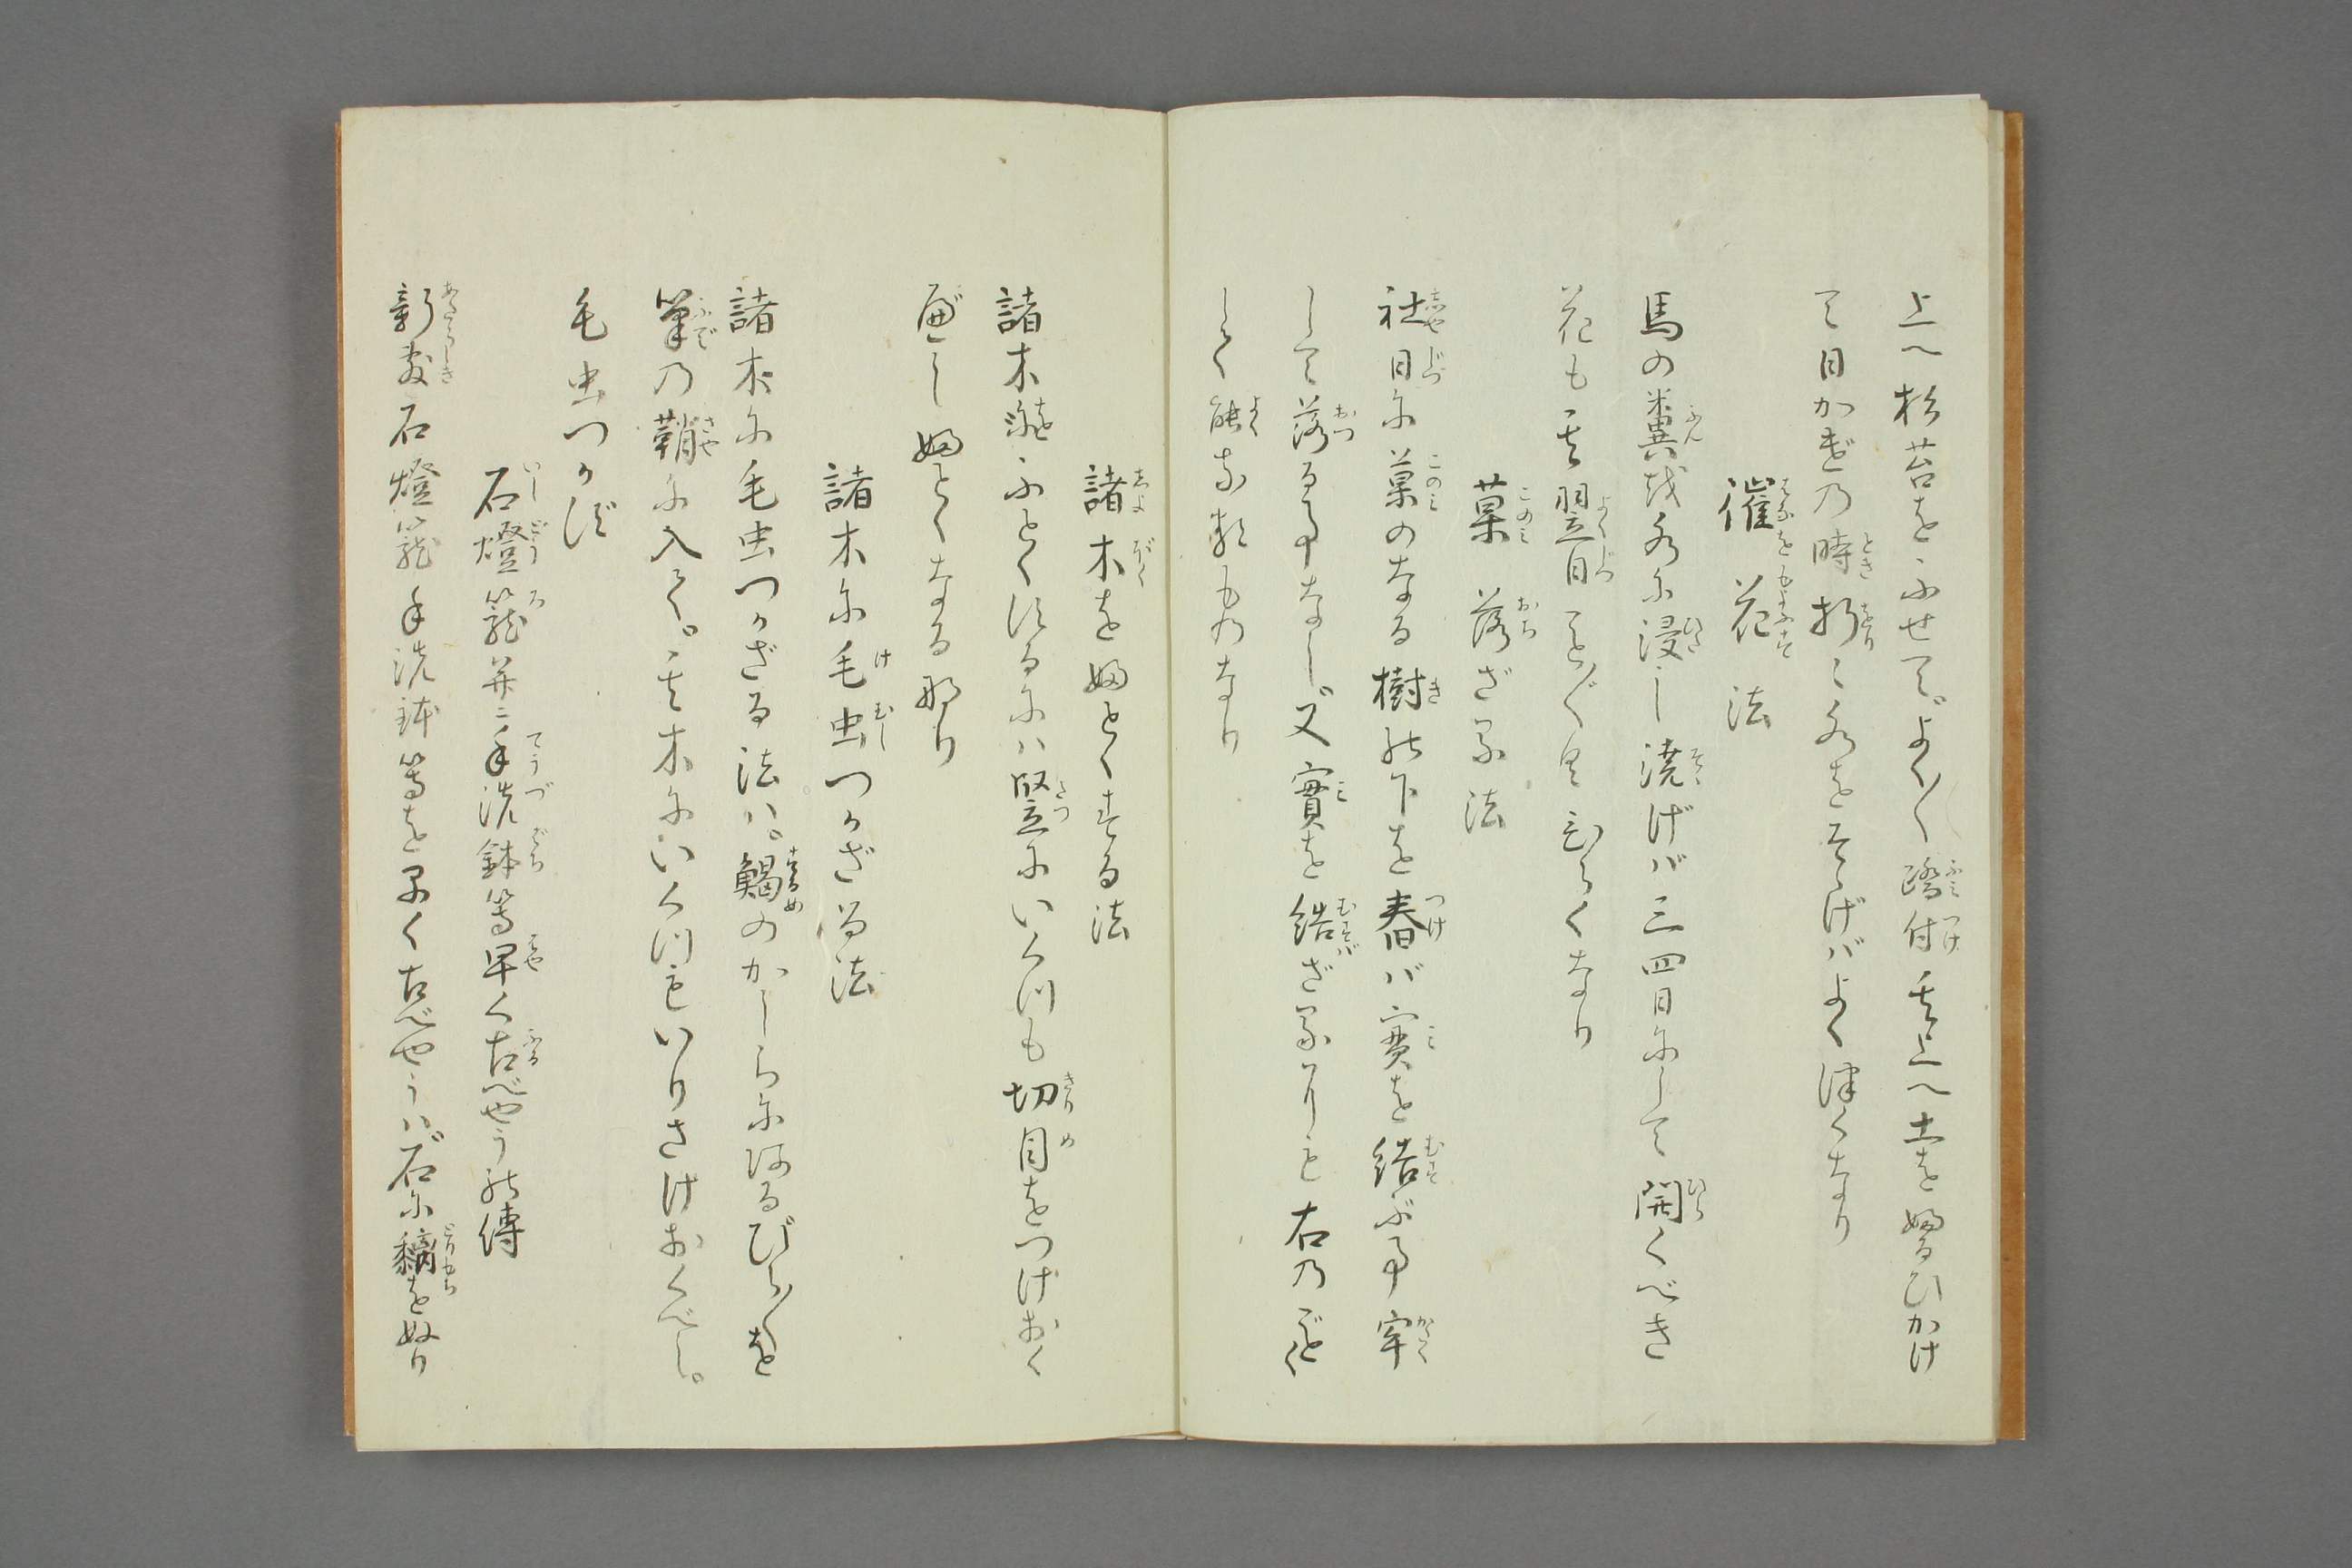 上へ杉苔をふせて。よく〳〵踏付其上へ土をふるひかけ
て日かげの時折々水をそゝげバよくつくなり
催花法
馬の糞を水に浸し澆げバ三四日にして開くべき
花も其翌日こと〴〵くひらくなり
菓落ざる法
社日に菓のなる樹の下を舂バ実を結ぶ事牢
して落る事なし。又實を結ざるなりとも右のごとく
して能なるものなり
諸木をふとくする法
諸木をふとくするにハ竪にいくつも切目をつけおく
べし ふとくなる那り
諸木に毛虫つかざる法
諸木に毛虫つかざる法ハ。鰑のかしらにあるびら〳〵を
筆の鞘に入て。其木にいくつもいりさげおくべし。
毛虫つかず
石燈籠并ニ手洗鉢等早く古べやうの傳
新敷石燈籠手洗鉢等を早く古べやうハ。石に黐をぬり